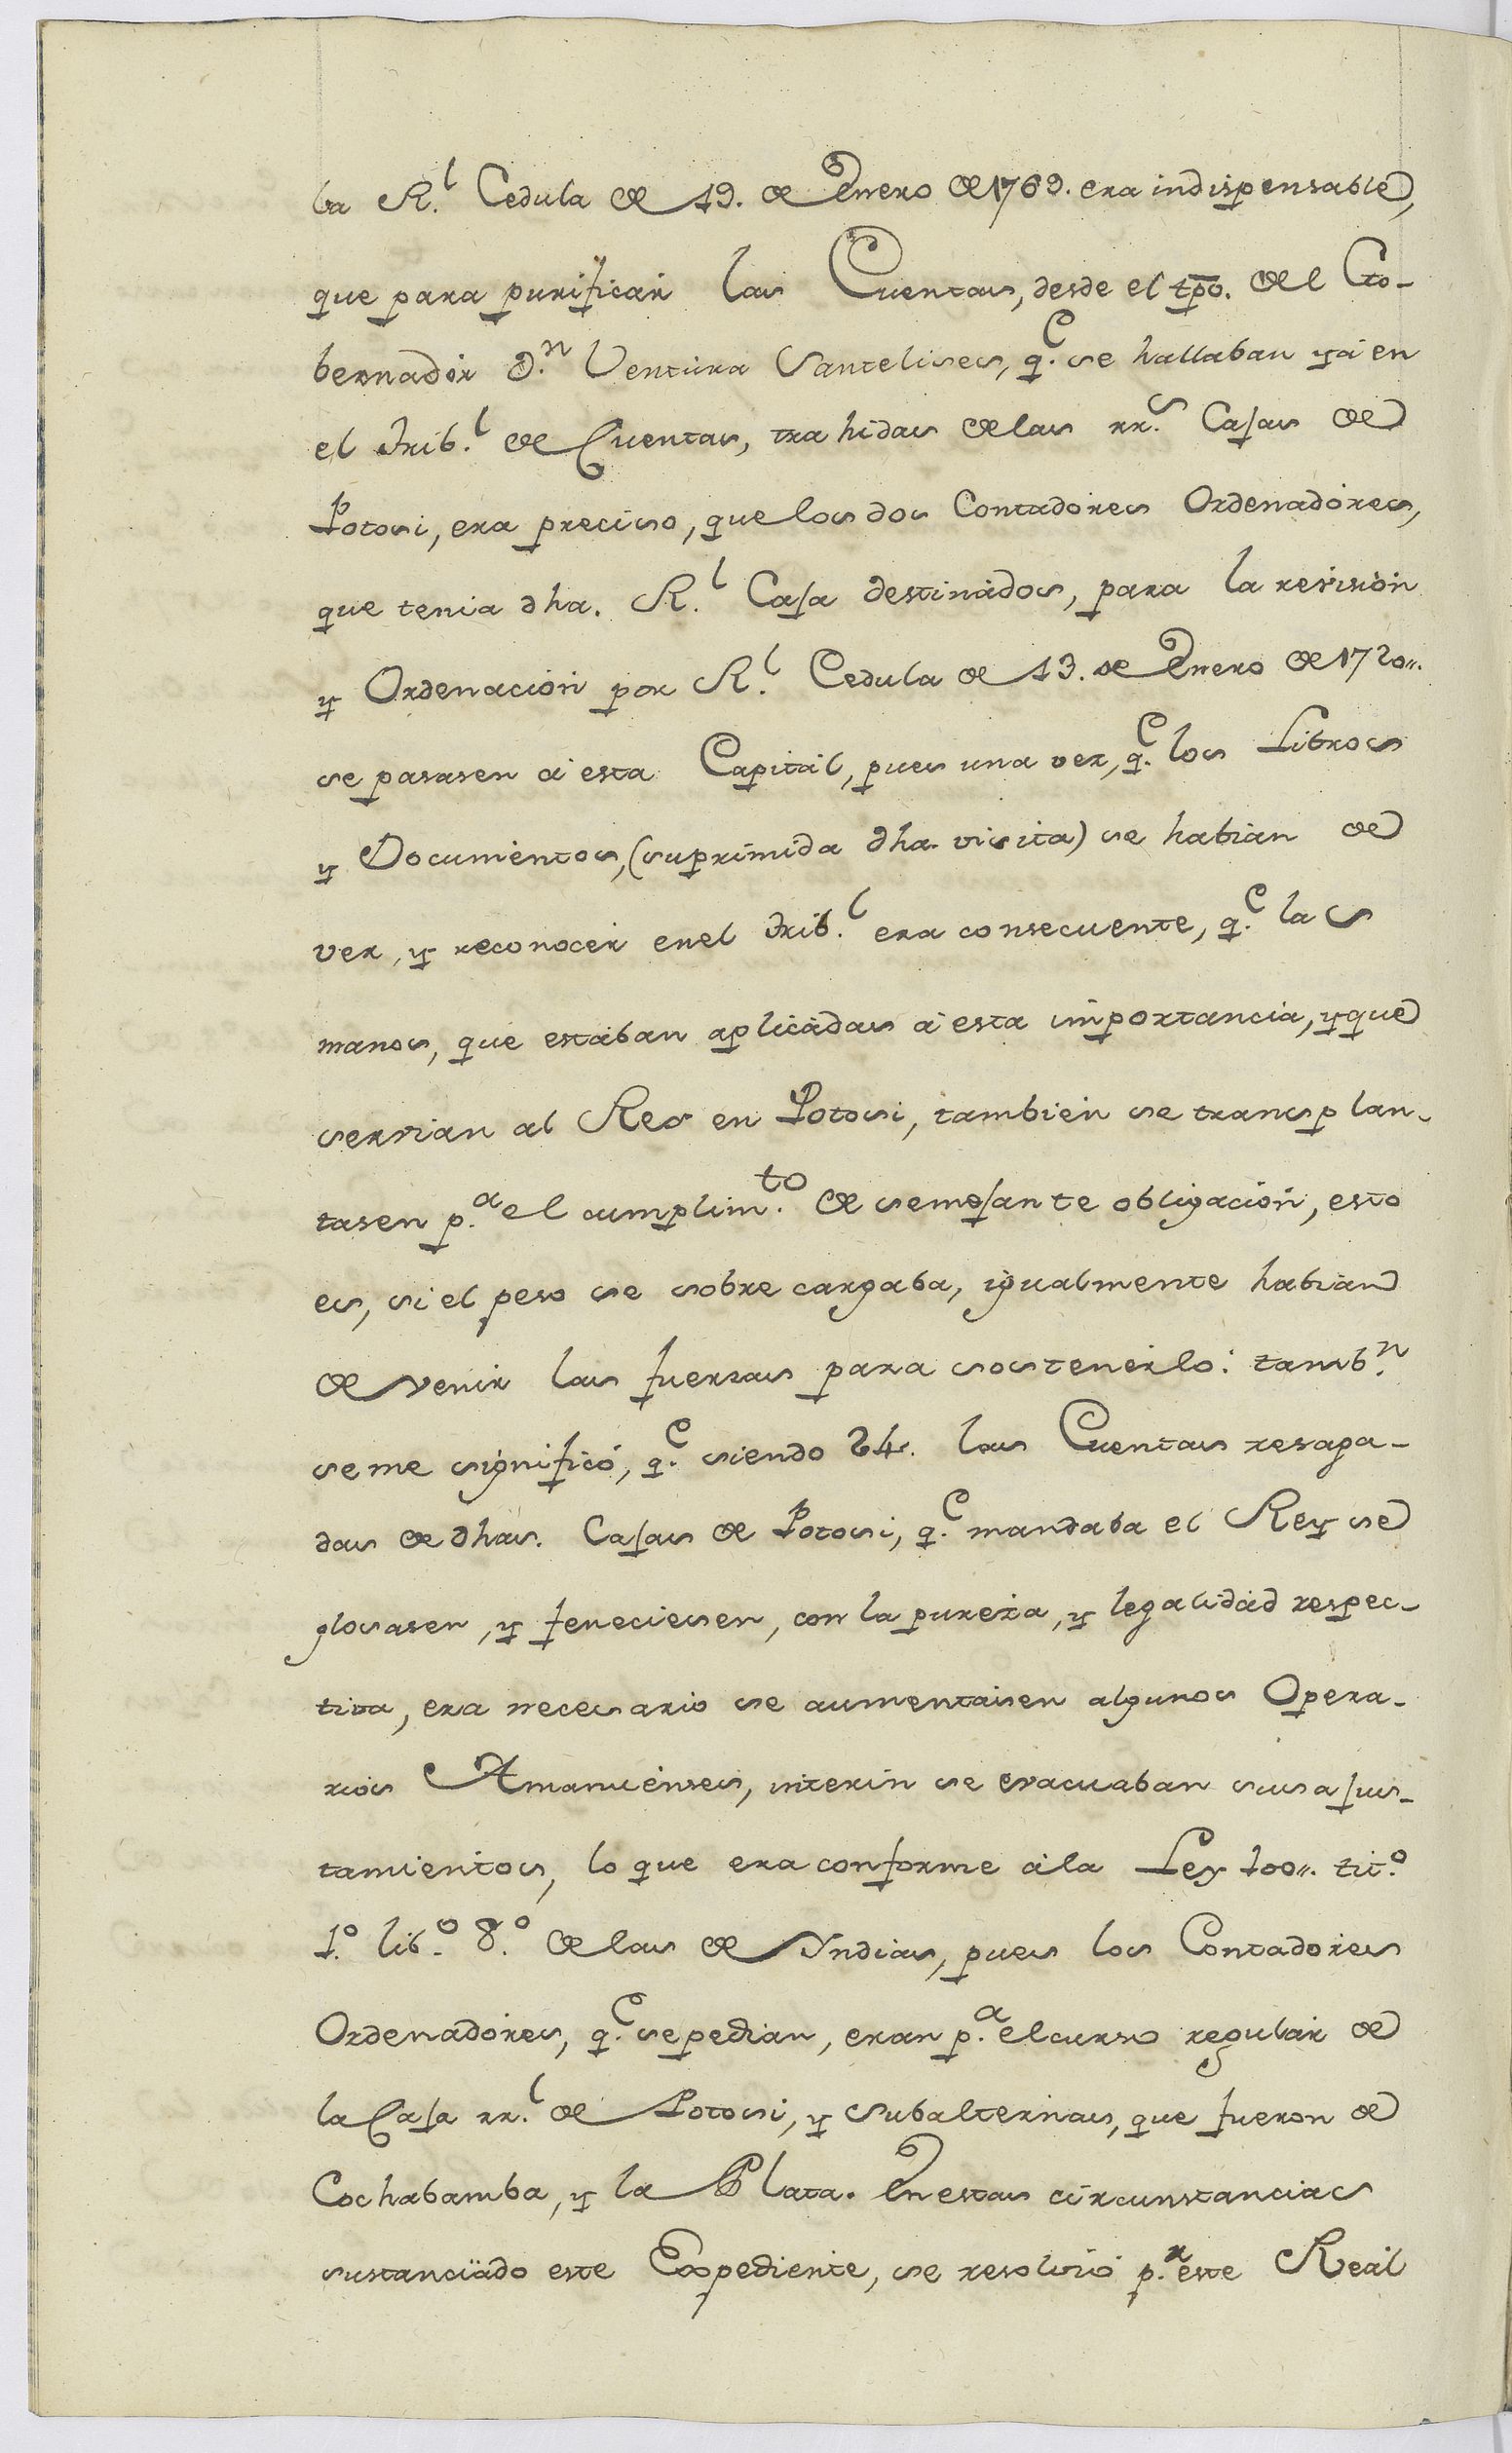 la R.l Cedula de 19. de Enero de 1769. era indispensable,
que para purificar las Cuentas, desde el tpō. del Go-
bernador D.n Ventura Santelises, q.e se hallaban ya en
el Trib.l de Cuentas, trahidas de las rr.s Cajas de
Potosi, era preciso, que los dos Contadores Ordenadores,
que tenia dha. R.l Caja destinados, para la revision
y Ordenacion por R.l Cedula de 13. de Enero de 1720,,.
se pasasen á esta Capital, pues una vez, q.e los Libros
y Documentos, (suprimida dha. visita) se habian de
ver, y reconocer en el Trib.l era consecuente, q.e las
manos, que estaban aplicadas á esta importancia, y que
servian al Rey en Potosi, tambien se transplan-
tasen p.a el cumplim.to de semejante obligacion, esto
es, si el peso se sobre cargaba, igualmente habian
de venir las fuerzas para sostenerlo: tamb.n
se me significó, q.e siendo 24. las Cuentas resaga-
das de dhas. Cajas de Potosi, q.e mandaba el Rey se
glosasen, y feneciesen, con la pureza, y legalidad respec-
tiva, era necesario se aumentasen algunos Opera-
rios Amanuenses, interin se evacuaban sus ajus-
tamientos, lo que era conforme á la Ley 100,,. tit.o
1.o lib.o 8.o de las de Yndias, pues los Contadores
Ordenadores, q.e se pedian, eran p.a el curso regular de
la Caja rr.l de Potosi, y Subalternas, que fueron de
Cochabamba, y la Plata. En estas circunstancias
sustanciado este Expediente, se resolvió p.r este Real